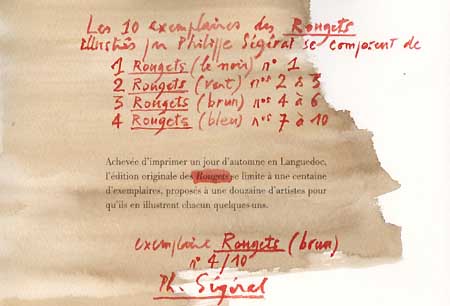 Les 10 exemplaires des Rougets
illustrés par Philippe Ségéral se composent de
1 Rougets (le noir) n° 1
2 Rougets (vert) nos 2 à 3
3 Rougets (brun) nos 4 à 6
4 Rougets (bleu) nos 7 à 10
Achevée d'imprimer un jour d'automne en Languedoc,
l'édition originale des Rougets se limite à une centaine
d'exemplaires, proposés à une douzaine d'artistes pour
qu'ils en illustrent chacun quelques-uns.
exemplaire Rougets (brun)
n° 4/10
Ph. Ségéral